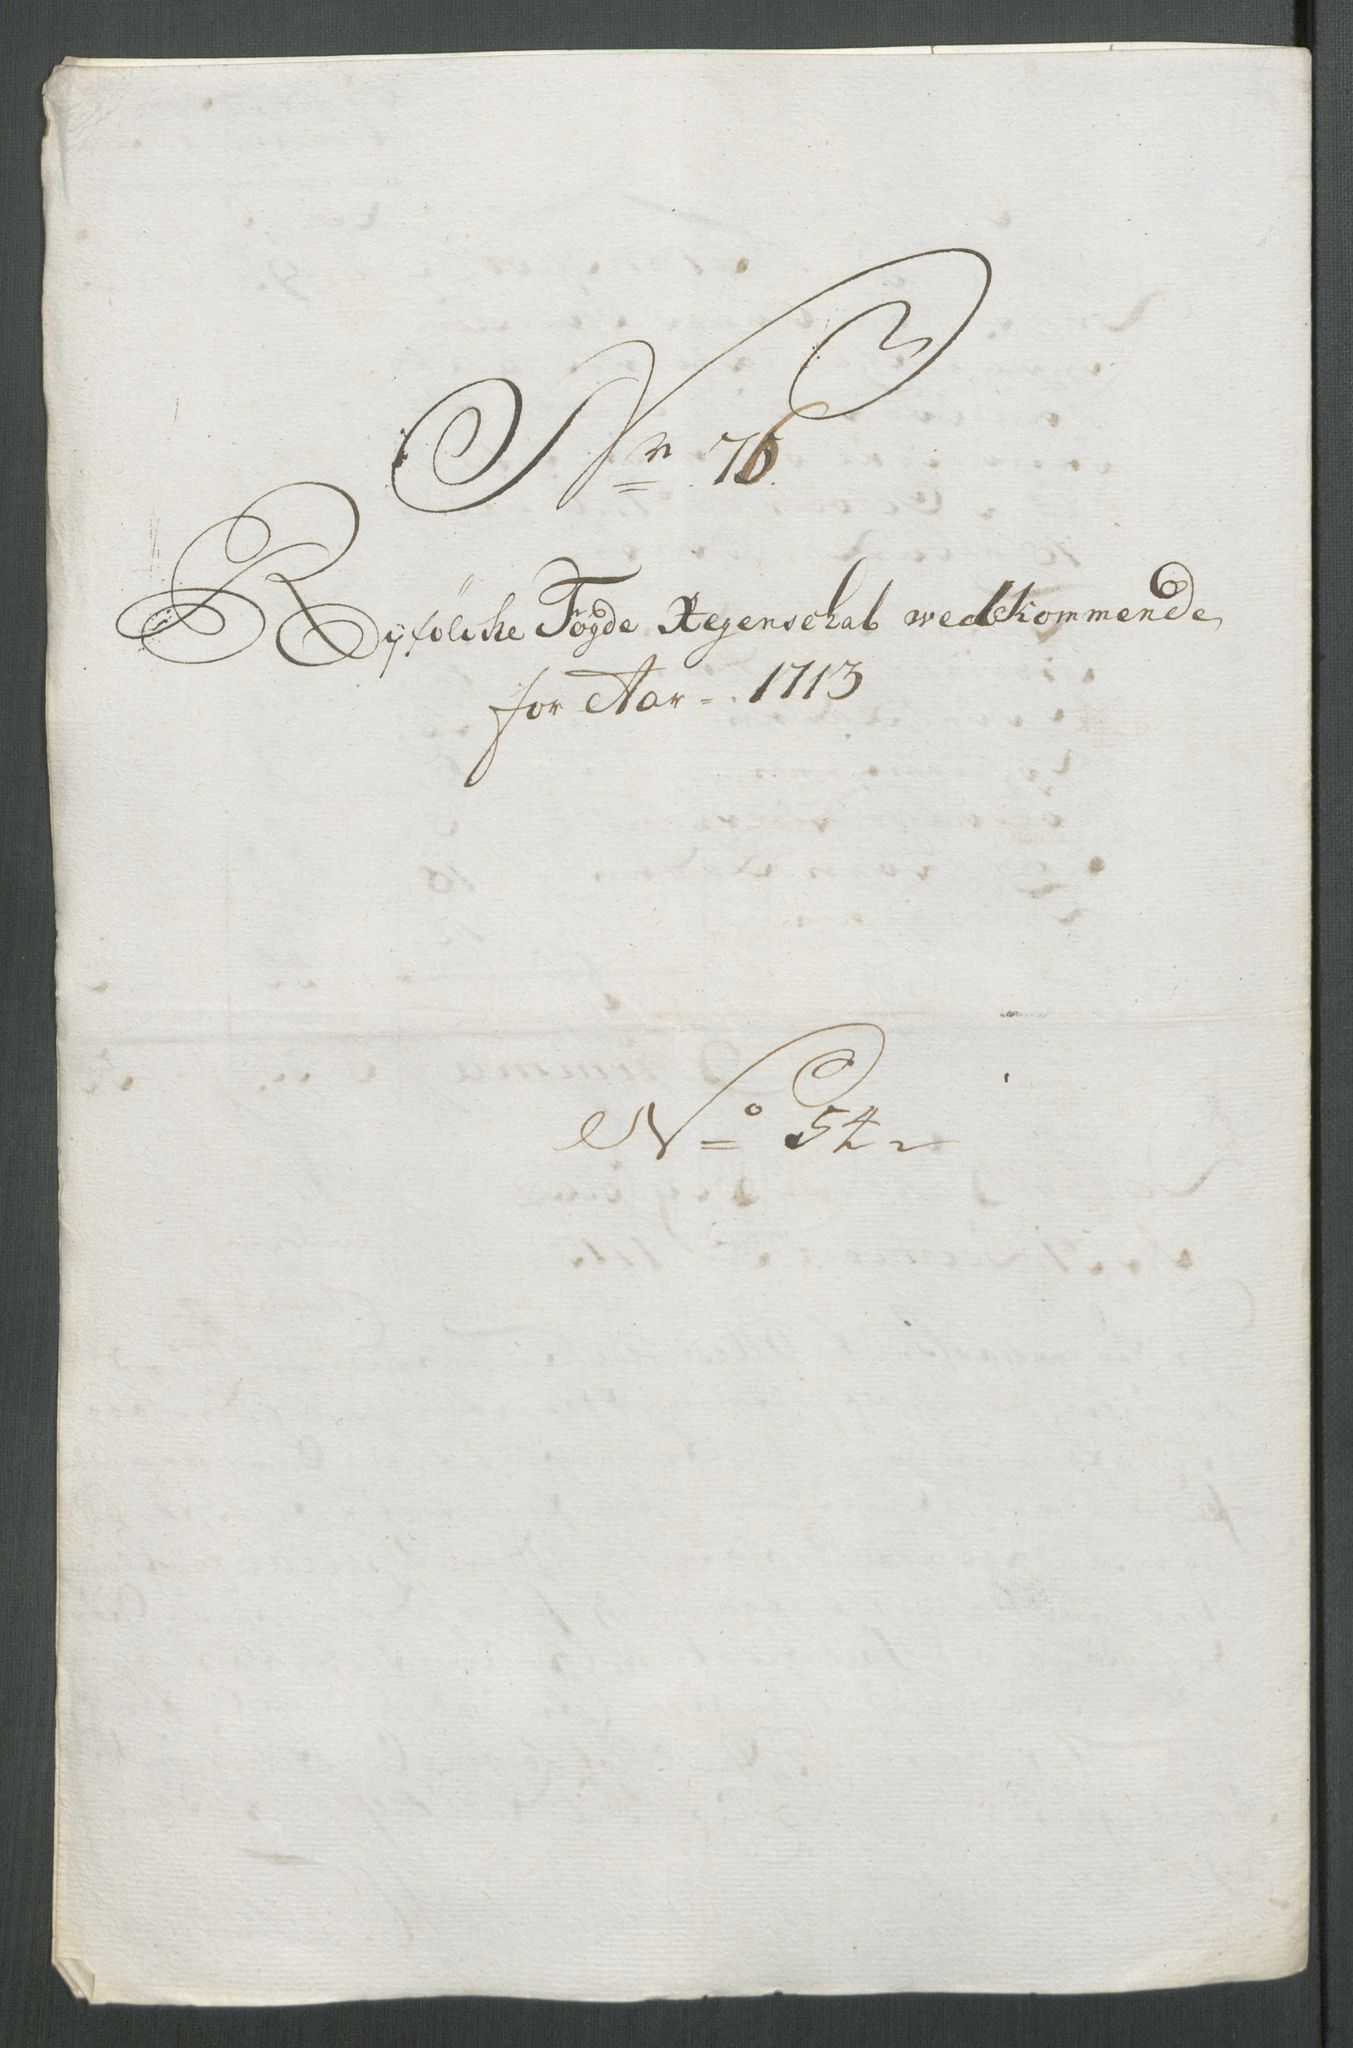 Nr 76.
Ryfölche Fogde Regenschab wedkommende,
for Aar - 1713
No 54